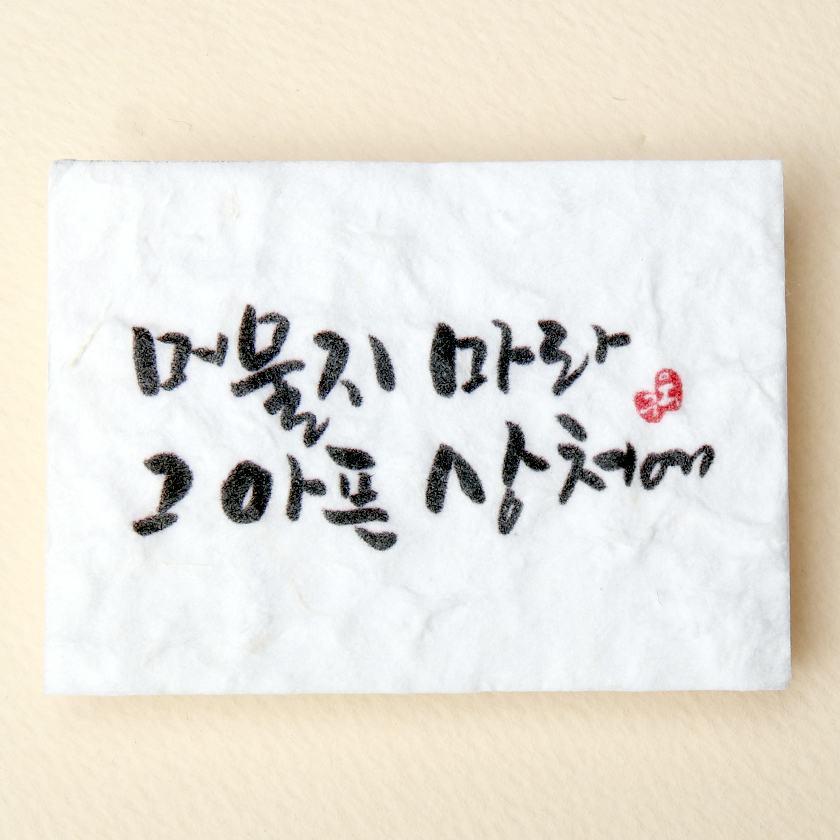 머물지 마라
그 아픈 상처에